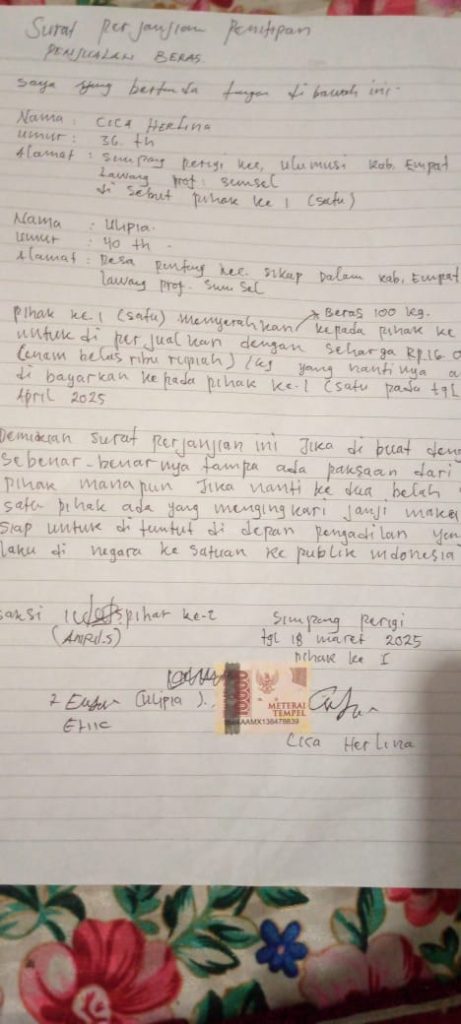 Surat perjanjian Penitipan
PENJUALAN BERAS.
Saya yang bertanda tangan di bawah ini.
Nama : CICA HERLINA
umur : 36. th
Alamat : Simpang perigi kec, ulumusi kab. Empat
Lawang prof: sumsel
di sebut pihak ke 1 (satu)
Nama : Ulipia.
umur : 40 th.
Alamat : Desa kec. Sikap Dalam kab, Empat
Lawang prof. Sum Sel
* Beras 100 kg.
pihak ke.1 (satu) menyerahkan kepada pihak ke
untuk di perjualkan dengan seharga Rp.16. 0
(enam belas ribu rupiah) /kg yang nantinya a
di bayarkan kepada pihak ke-1 (satu pada tgl
April 2025
Demikian surat perjanjian ini Jika di buat deng
sebenar-benarnya tampa ada paksaan dari
pihak manapun Jika nanti ke dua belah
satu pihak ada yang mengingkari janji maka
siap untuk di tuntut di depan pengadilan yan
laku di negara ke satuan Republik indonesia
saksi 1 pihak ke-2 Simpang perigi
(AMRIL.S) tgl 18 maret 2025
pihak ke I
2 (Ulipia).
10000
METERAI
TEMPEL
AAMX136478839
Cica Herlina